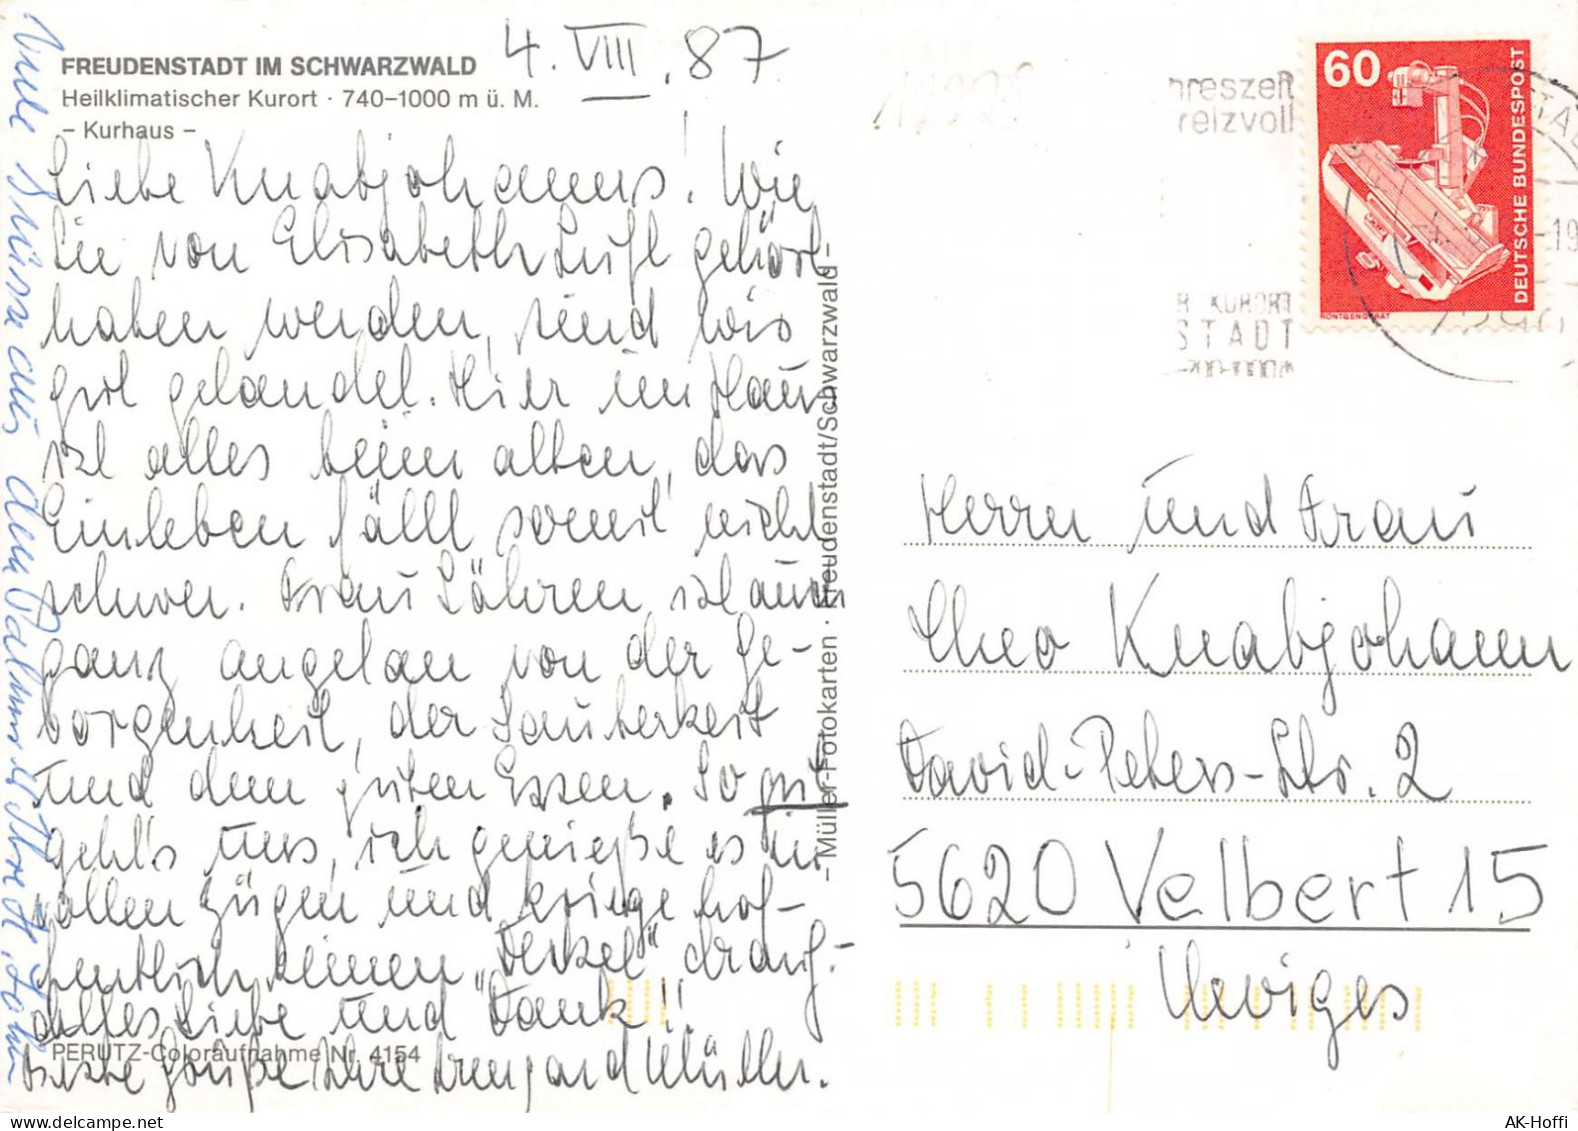 FREUDENSTADT IM SCHWARZWALD
Heilklimatischer Kurort · 740–1000 m ü. M.
– Kurhaus –
4. VIII. 87
Liebe Knabjohanns! Wie
Sie von Elisabeth gehört
haben werden, sind wir
gut gelandet. Hier im Haus
ist alles beim alten, das
Einleben fällt somit nicht
schwer. Frau Löhren ist auch
ganz angetan von der Ge-
borgenheit, der Sauberkeit
und dem guten Essen. So gut
geht's uns, ich genieße es in
vollen Zügen und kriege hof-
fentlich keinen „Ferkel" drauf.-
Alles Liebe und Dank!!
Beste Grüße Ihre Irmgard Müller.
PERUTZ-Coloraufnahme Nr. 4154
Viele Grüsse aus dem Ihre H.
– Müller-Fotokarten · Freudenstadt/Schwarzwald –
hreszeit
reizvoll
R KURORT
STADT
60
DEUTSCHE BUNDESPOST
RÖNTGENGERÄT
Herrn und Frau
Theo Knabjohann
David-Peters-Str. 2
5620 Velbert 15
Neviges
AK-Hoffi